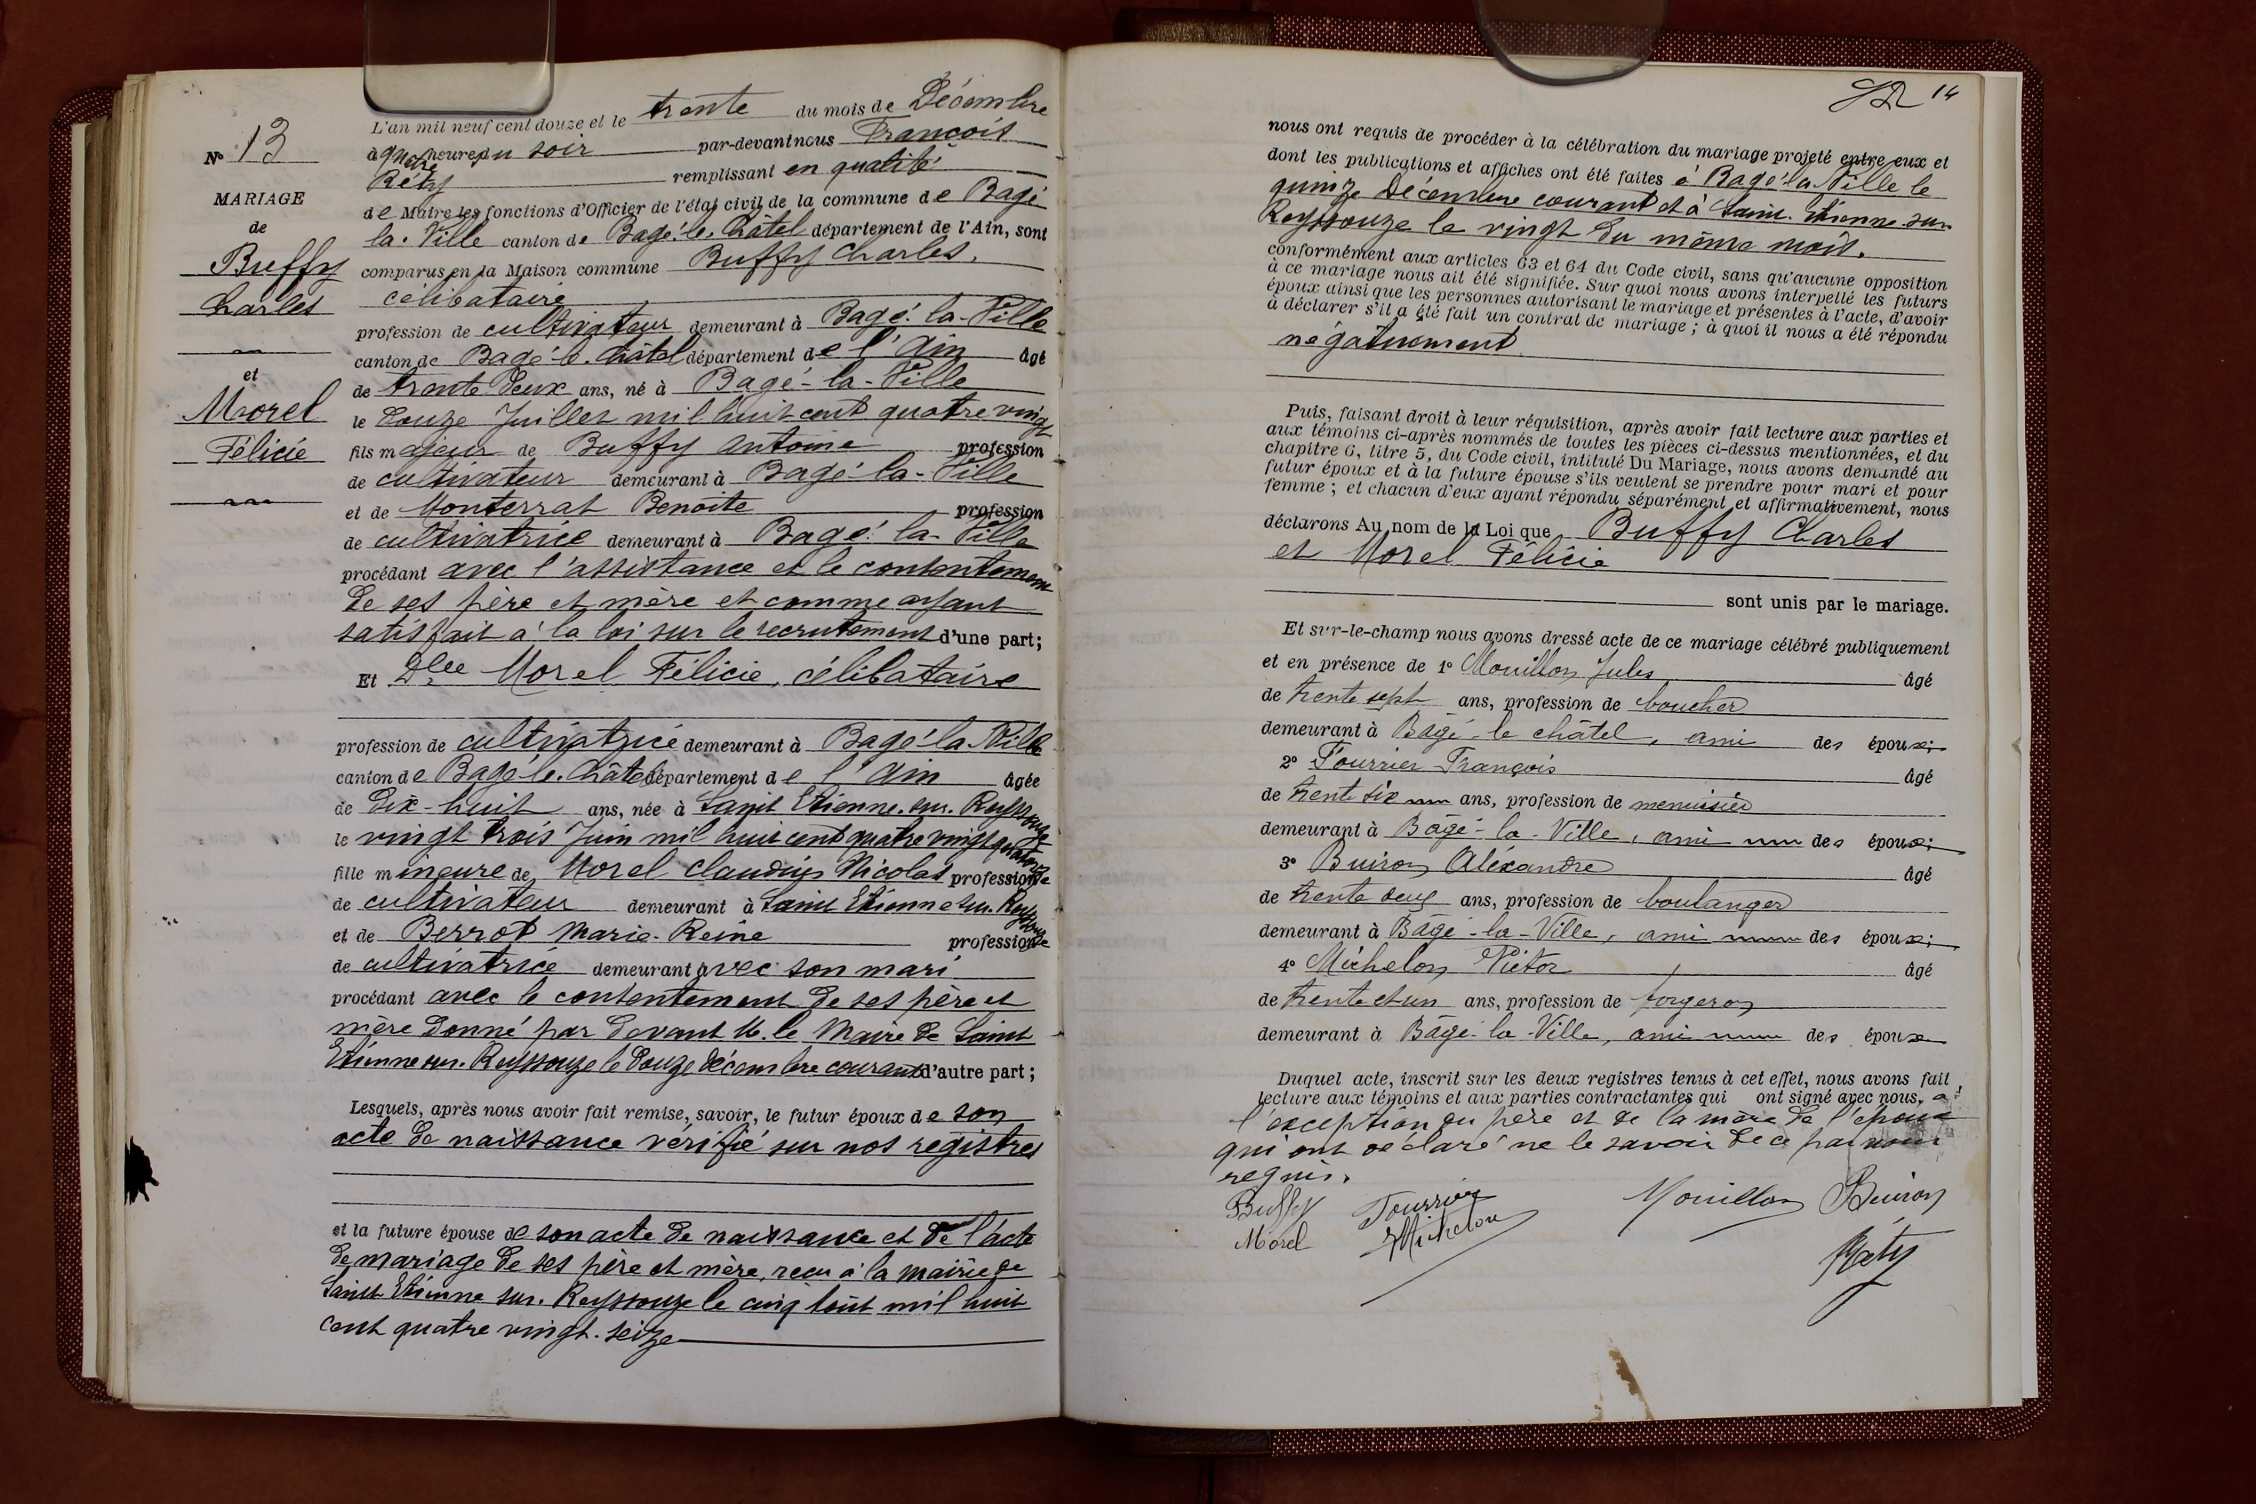 N° 13
MARIAGE
de
Buffy
Charles
et
Morel
Félicie
L'an mil neuf cent douze et le trente du mois de Décembre
à quatre heures du soir par-devant nous François
Réty remplissant en qualité
de Maire les fonctions d'Officier de l'état civil de la commune de Bagé
la-Ville canton de Bagé-le-Châtel département de l'Ain, sont
comparus en la Maison commune Buffy Charles,
célibataire
profession de cultivateur demeurant à Bagé-la-Ville
canton de Bagé-le-Châtel département de l'Ain âgé
de trente deux ans, né à Bagé-la-Ville
le douze Juillet mil huit cent quatre vingt
fils majeur de Buffy Antoine profession
de cultivateur demeurant à Bagé-la-Ville
et de Monterrat Benoite profession
de cultivatrice demeurant à Bagé-la-Ville
procédant avec l'assistance et le consentement
de ses père et mère et comme ayant
satisfait à la loi sur le recrutement d'une part;
Et Dlle Morel Félicie, célibataire
profession de cultivatrice demeurant à Bagé-la-Ville
canton de Bagé-le-Châtel département de l'Ain âgée
de dix-huit ans, née à Saint Etienne-sur-Reyssouze
le vingt trois Juin mil huit cent quatre vingt quatorze
fille mineure de Morel Claudius Nicolas profession
de cultivateur demeurant à Saint Etienne sur-Reyssouze
et de Berrod Marie-Reine profession
de cultivatrice demeurant avec son mari
procédant avec le consentement de ses père et
mère donné par devant M. le Maire de Saint
Etienne sur-Reyssouze le douze décembre courant d'autre part;
Lesquels, après nous avoir fait remise, savoir, le futur époux de son
acte de naissance vérifié sur nos registres
et la future épouse de son acte de naissance et de l'acte
de mariage de ses père et mère, reçu à la mairie de
Saint Etienne sur-Reyssouze le cinq août mil huit
cent quatre vingt-seize
14
nous ont requis de procéder à la célébration du mariage projeté entre eux et
dont les publications et affiches ont été faites à Bagé-la-Ville le
quinze Décembre courant et à Saint-Etienne-sur
Reyssouze le vingt du même mois.
conformément aux articles 63 et 64 du Code civil, sans qu'aucune opposition
à ce mariage nous ait été signifiée. Sur quoi nous avons interpellé les futurs
époux ainsi que les personnes autorisant le mariage et présentes à l'acte, d'avoir
à déclarer s'il a été fait un contrat de mariage; à quoi il nous a été répondu
négativement
Puis, faisant droit à leur réquisition, après avoir fait lecture aux parties et
aux témoins ci-après nommés de toutes les pièces ci-dessus mentionnées, et du
chapitre 6, titre 5, du Code civil, intitulé Du Mariage, nous avons demandé au
futur époux et à la future épouse s'ils veulent se prendre pour mari et pour
femme; et chacun d'eux ayant répondu séparément et affirmativement, nous
déclarons Au nom de la Loi que Buffy Charles
et Morel Félicie
sont unis par le mariage.
Et sur-le-champ nous avons dressé acte de ce mariage célébré publiquement
et en présence de 1° Mouillon Jules âgé
de trente sept ans, profession de boucher
demeurant à Bâgé-le châtel, ami des époux;
2° Fourrier François âgé
de trente six ans, profession de menuisier
demeurant à Bâgé-la-Ville, ami des époux;
3° Buiron Aléxandre âgé
de trente deux ans, profession de boulanger
demeurant à Bâgé-la-Ville, ami des époux;
4° Michelon Victor âgé
de trente et un ans, profession de forgeron
demeurant à Bâgé-la-Ville, ami des époux
Duquel acte, inscrit sur les deux registres tenus à cet effet, nous avons fait
lecture aux témoins et aux parties contractantes qui ont signé avec nous, à
l'exception du père et de la mère de l'époux
qui ont déclaré ne le savoir de ce par nous
requis.
Buffy Fourrier Mouillon Buiron
Morel Michelon
Réty